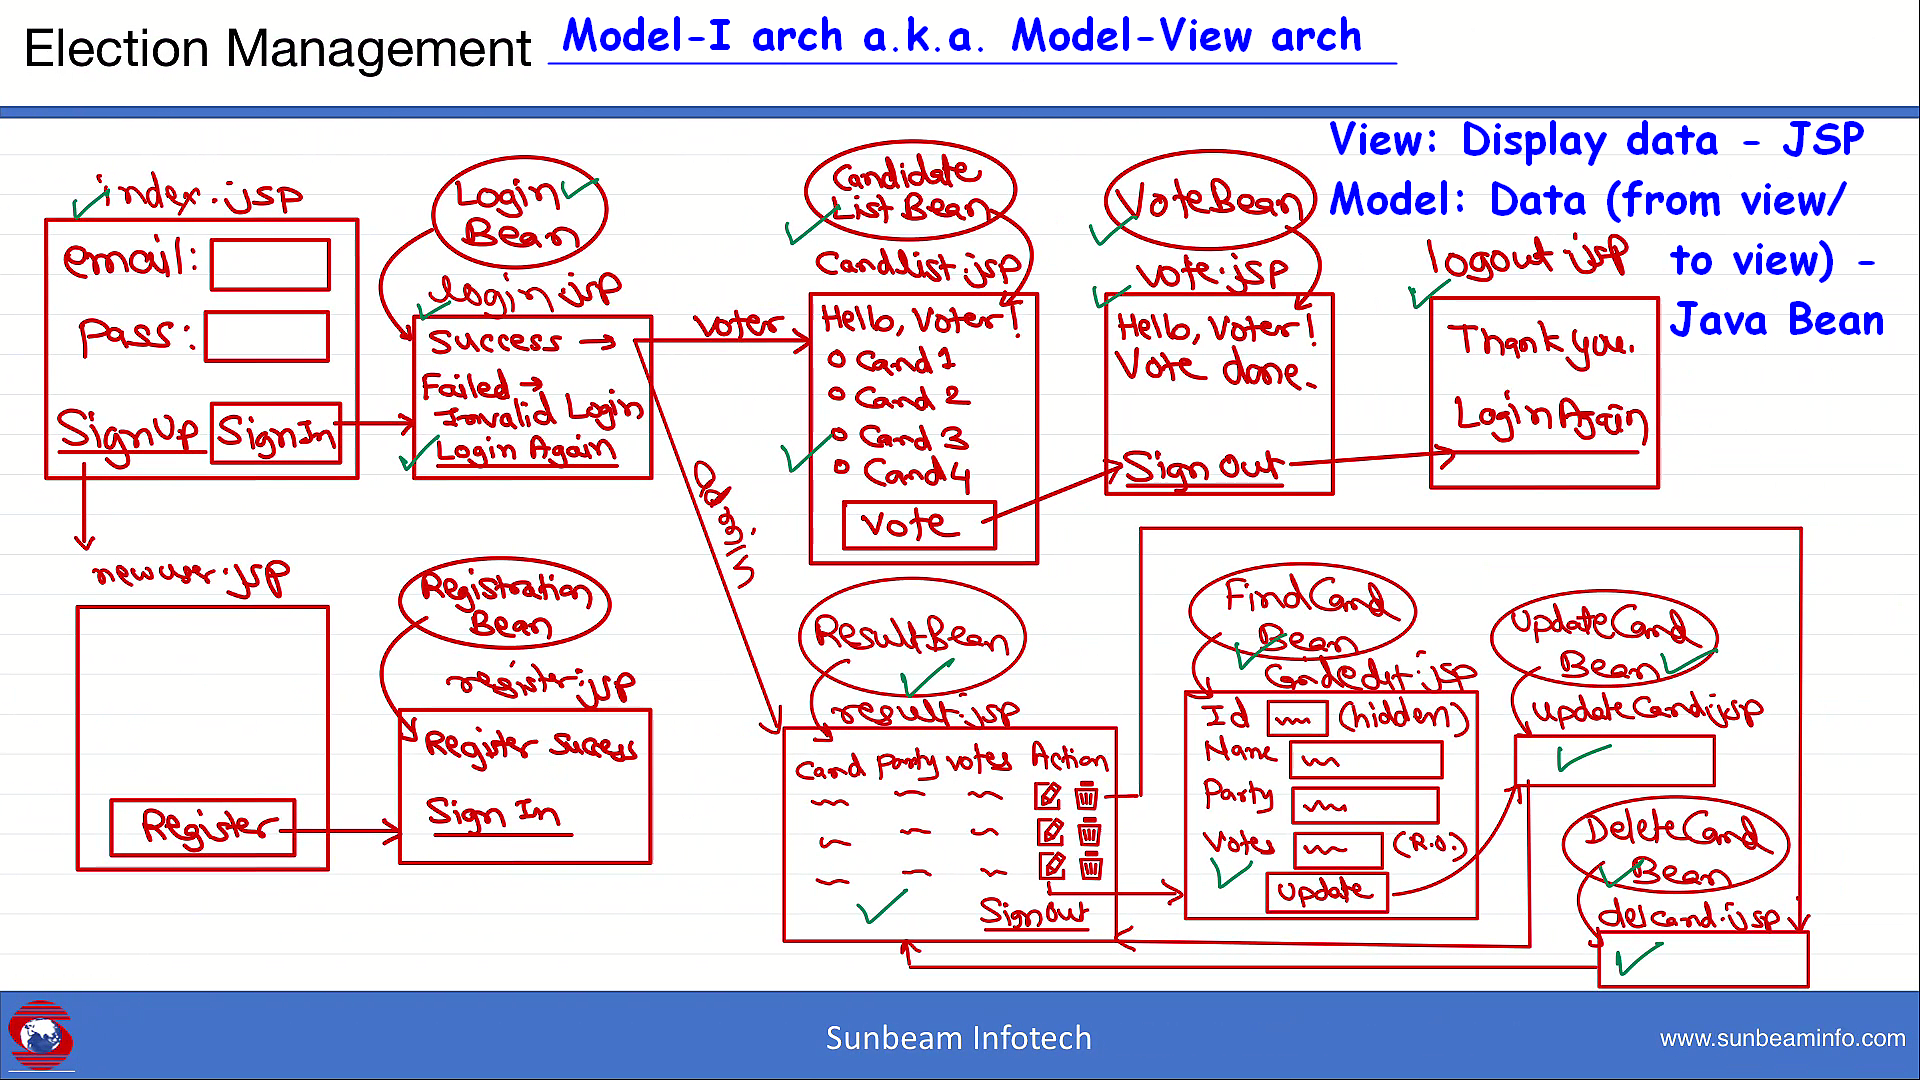 Election Management
Model-I arch a.k.a. Model-View arch
View: Display data - JSP
Model: Data (from view/
to view) -
Java Bean
index.jsp
email:
Pass:
SignUp
SignIn
Login
Bean
login.jsp
Success →
Failed →
Invalid Login
Login Again
voter
Admin
Candidate
List Bean
Candlist.jsp
Hello, Voter!
Cand 1
Cand 2
Cand 3
Cand 4
Vote
VoteBean
vote.jsp
Hello, Voter!
Vote done.
Sign Out
logout.jsp
Thank you.
Login Again
newuser.jsp
Register
Registration
Bean
register.jsp
Register Success
Sign In
ResultBean
result.jsp
Cand Party votes Action
SignOut
FindCand
Bean
Candedit.jsp
Id (hidden)
Name
Party
Votes (R.O.)
Update
UpdateCand
Bean
updateCand.jsp
DeleteCand
Bean
delcand.jsp
Sunbeam Infotech
www.sunbeaminfo.com